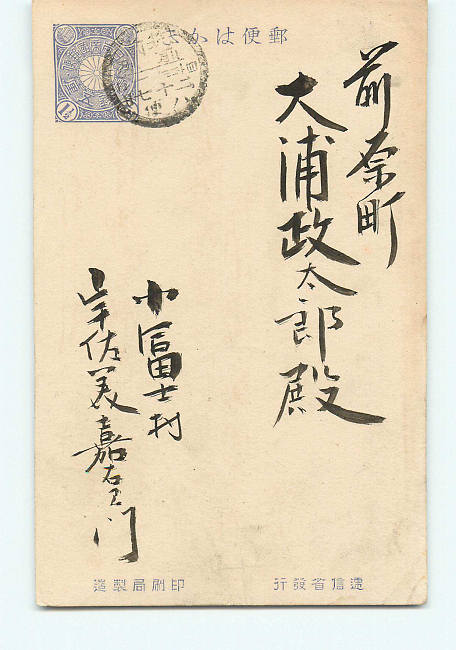 郵便はがき
前原町
大浦政太郎殿
小冨士村
宇佐美嘉右卫門
1½
遞信省發行
印刷局製造